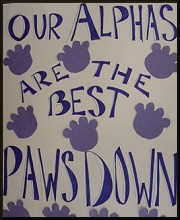 OUR ALPHAS
ARE THE
BEST
PAWS DOWN